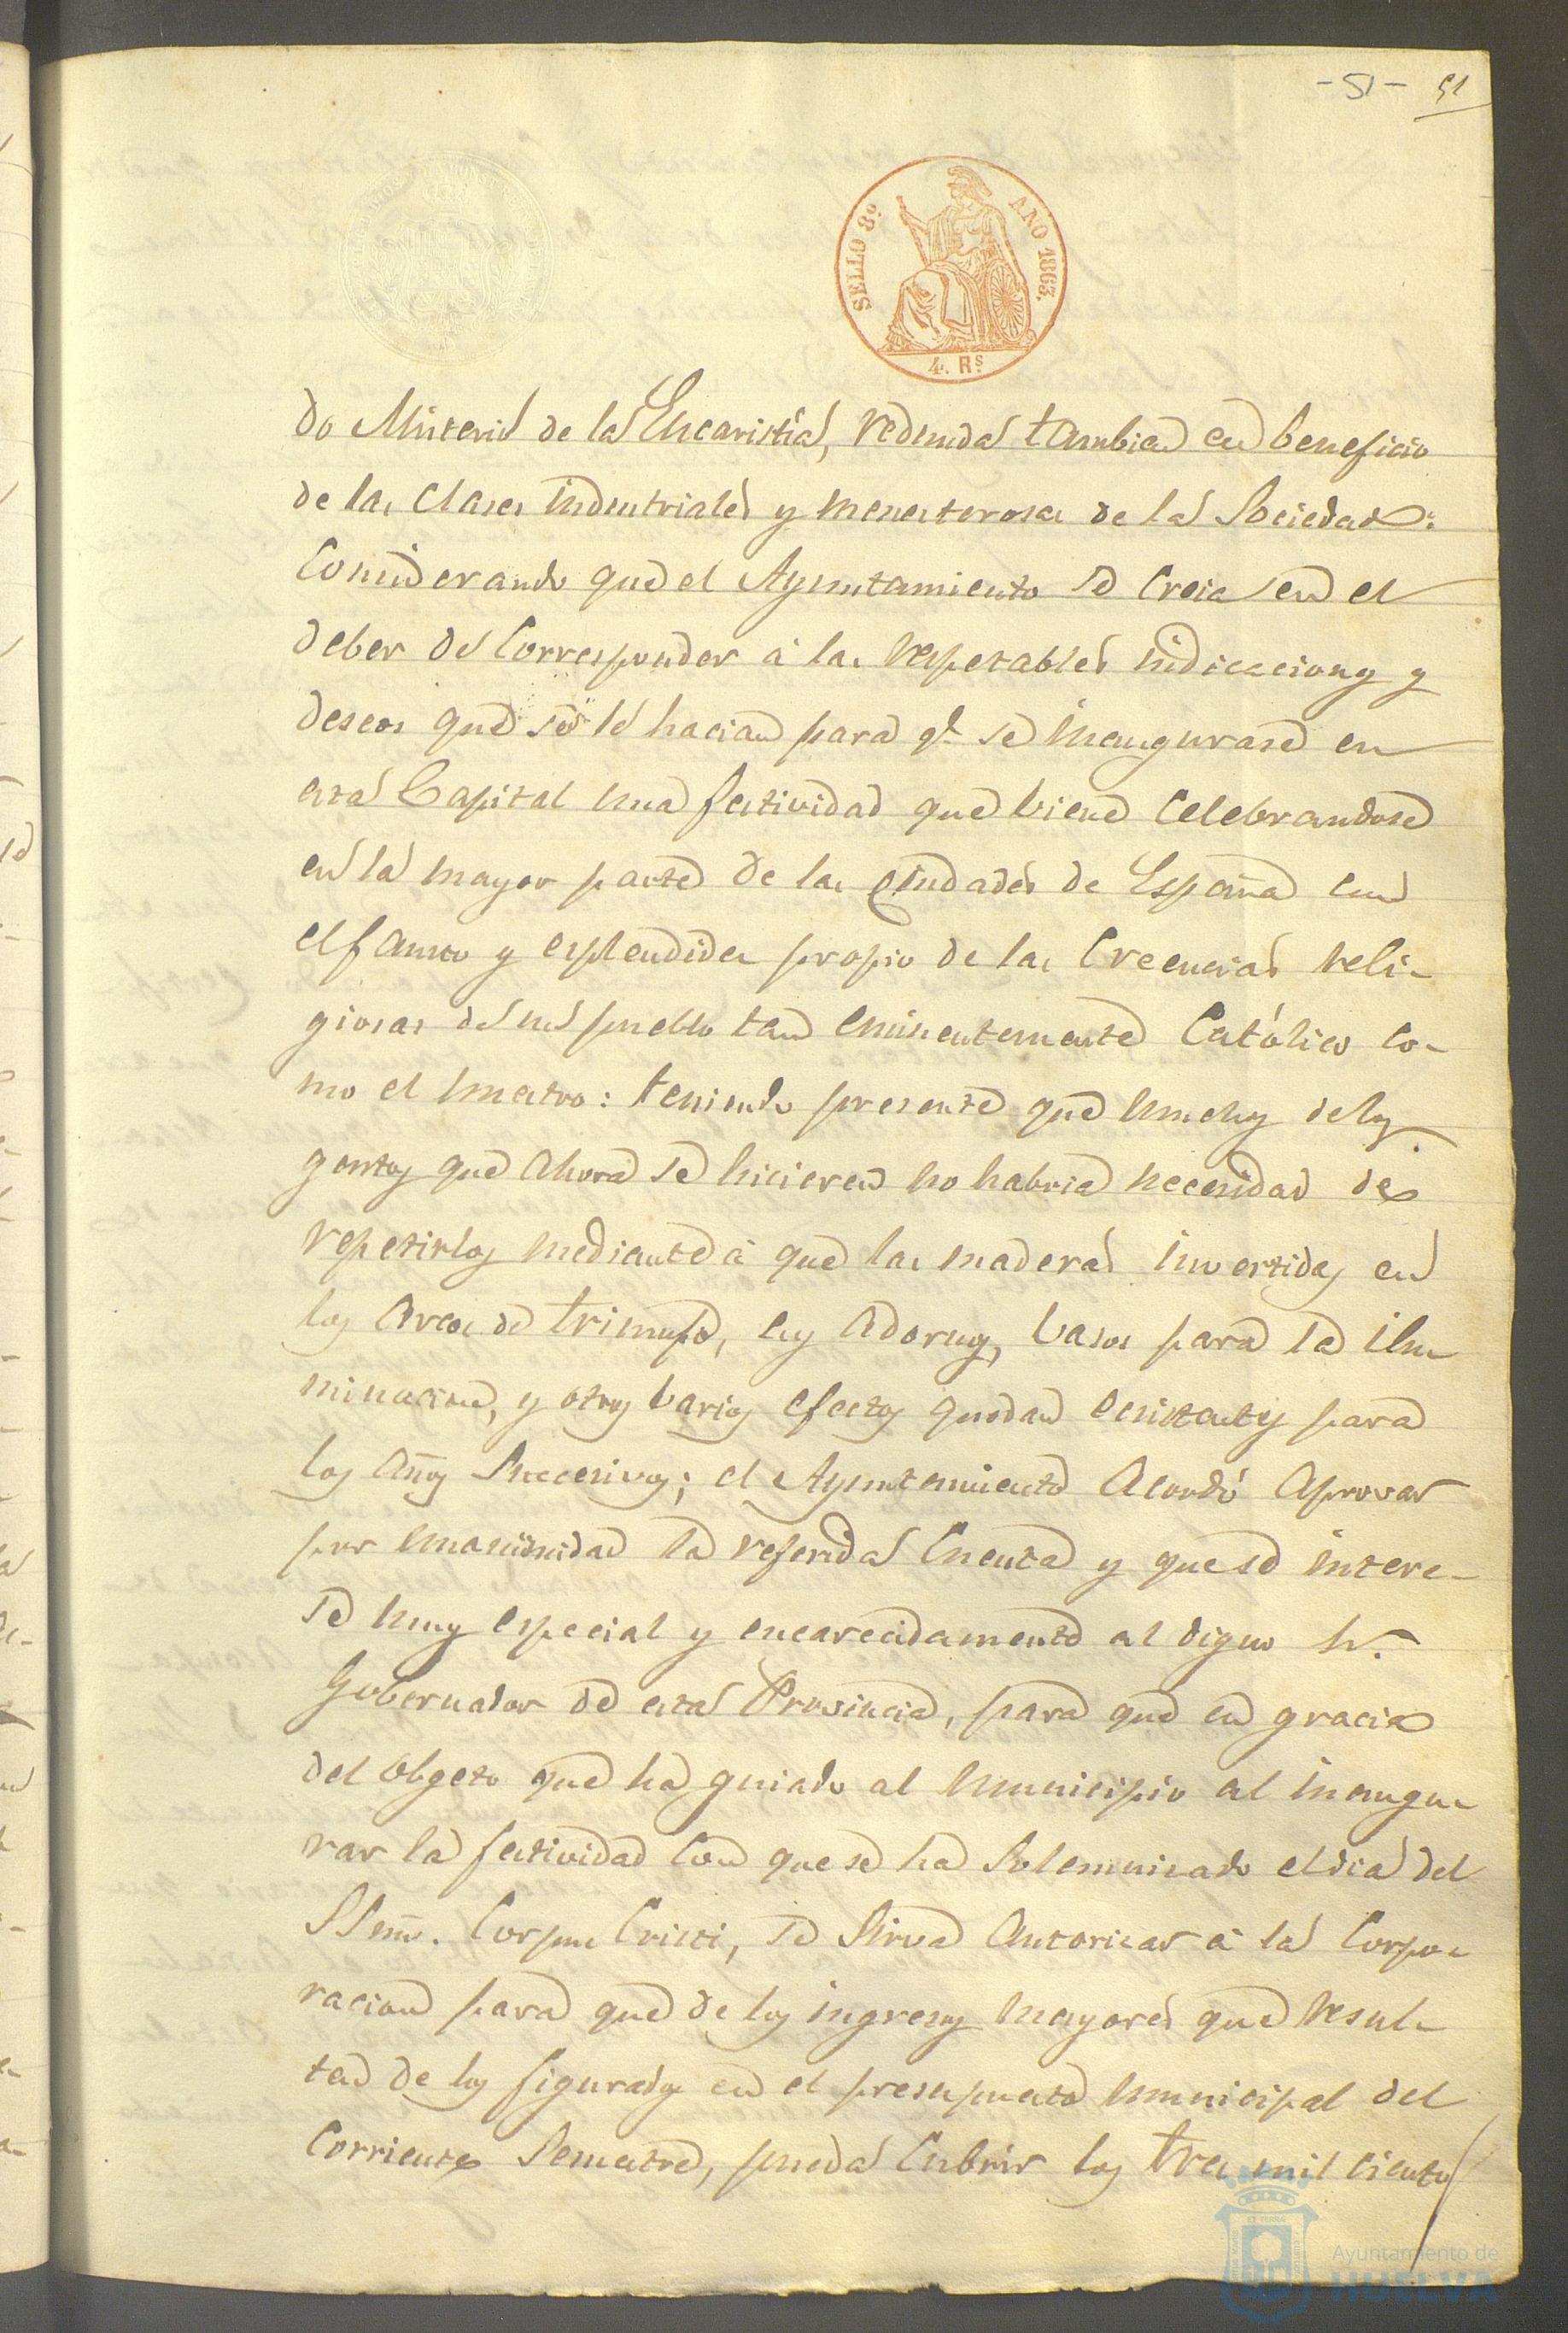 - 51 - 51
SELLO 8º AÑO 1863.
4. Rs
do Misterio de la Eucaristia, redunda tambien en beneficio
de las clases industriales y menesterosas de la Sociedad:
Considerando que el Ayuntamiento se creia en el
deber de corresponder à las respetables indicaciones y
deseos que se le hacian para qe. se inaugurase en
esta Capital una festividad que biene celebrandose
en la mayor parte de las Ciudades de España con
el fausto y esplendidez propio de las creencias reli-
giosas de un pueblo tan eminentemente Católico co-
mo el nuestro: teniendo presente que muchos de los
gastos que ahora se hicieren no habria necesidad de
repetirlos mediante à que las maderas invertidas en
los arcos de triunfo, sus adornos, basos para la ilu-
minacion, y otros barios efectos quedan ecsistentes para
los años sucesivos; el Ayuntamiento acordó aprovar
por unanimidad la referida cuenta y que se intere-
se muy especial y encarecidamente al digno Sr.
Gobernador de esta Provincia, para que en gracia
del obgeto que ha guiado al Municipio al inaugu-
rar la festividad con que se ha solemnizado el dia del
SSmo. Corpus Cristi, se sirva autorizar à la Corpo-
racion para que de los ingresos mayores que resul-
ten de los figurados en el presupuesto municipal del
corriente Semestre, pueda cubrir los tres mil ciento
Ayuntamiento de
HUELVA